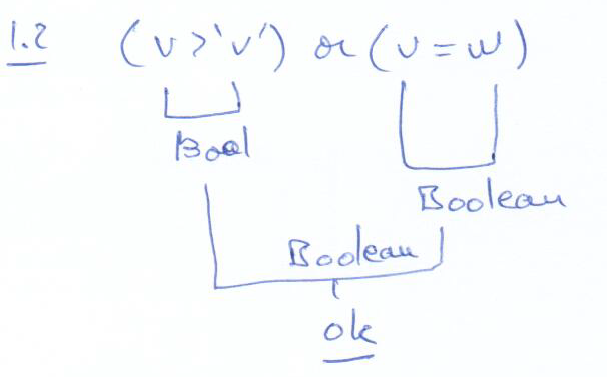 1.2 (v>'v') or (v=w)
Bool
Boolean
Boolean
ok